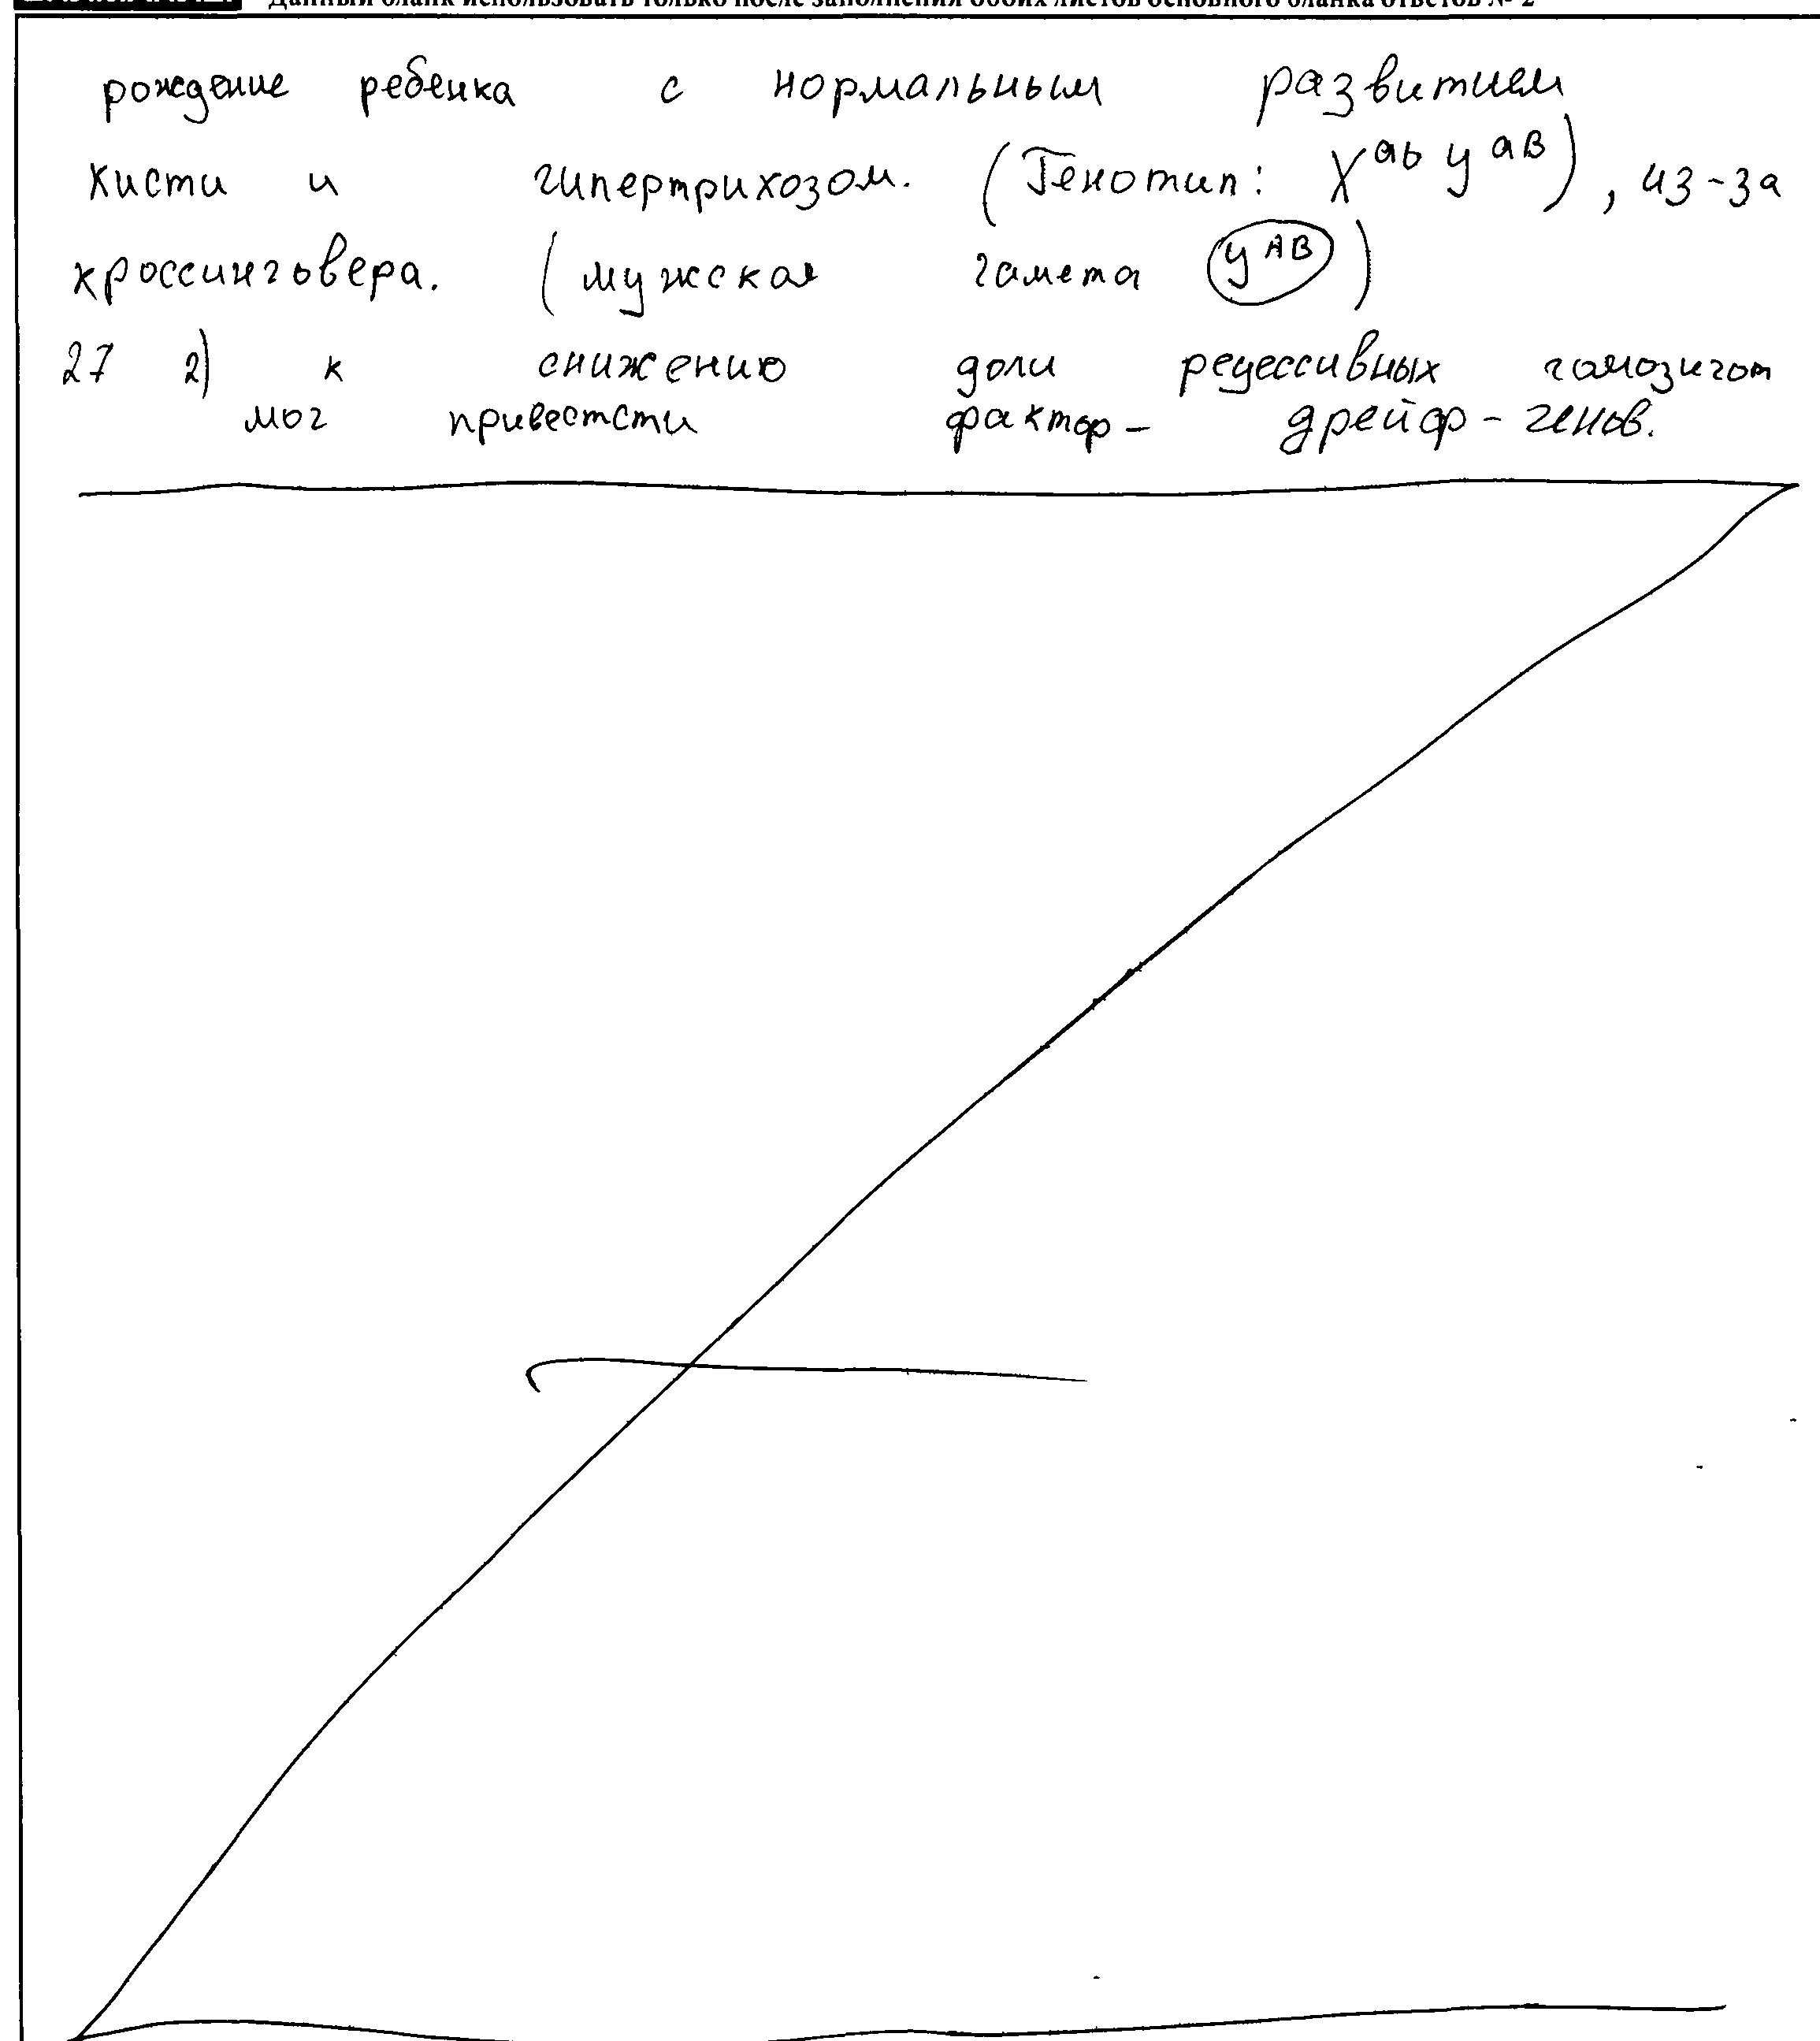 Данный бланк использовать только после заполнения обоих листов основного бланка ответов № 2
рождение ребенка с нормальным развитием
кисти и гипертрихозом. (Генотип: X^ab y^aB), из-за
кроссинговера. (мужская гамета y^AB)
27 2) к снижению доли рецессивных гамозигот
мог привестсти фактор - дрейф - генов.